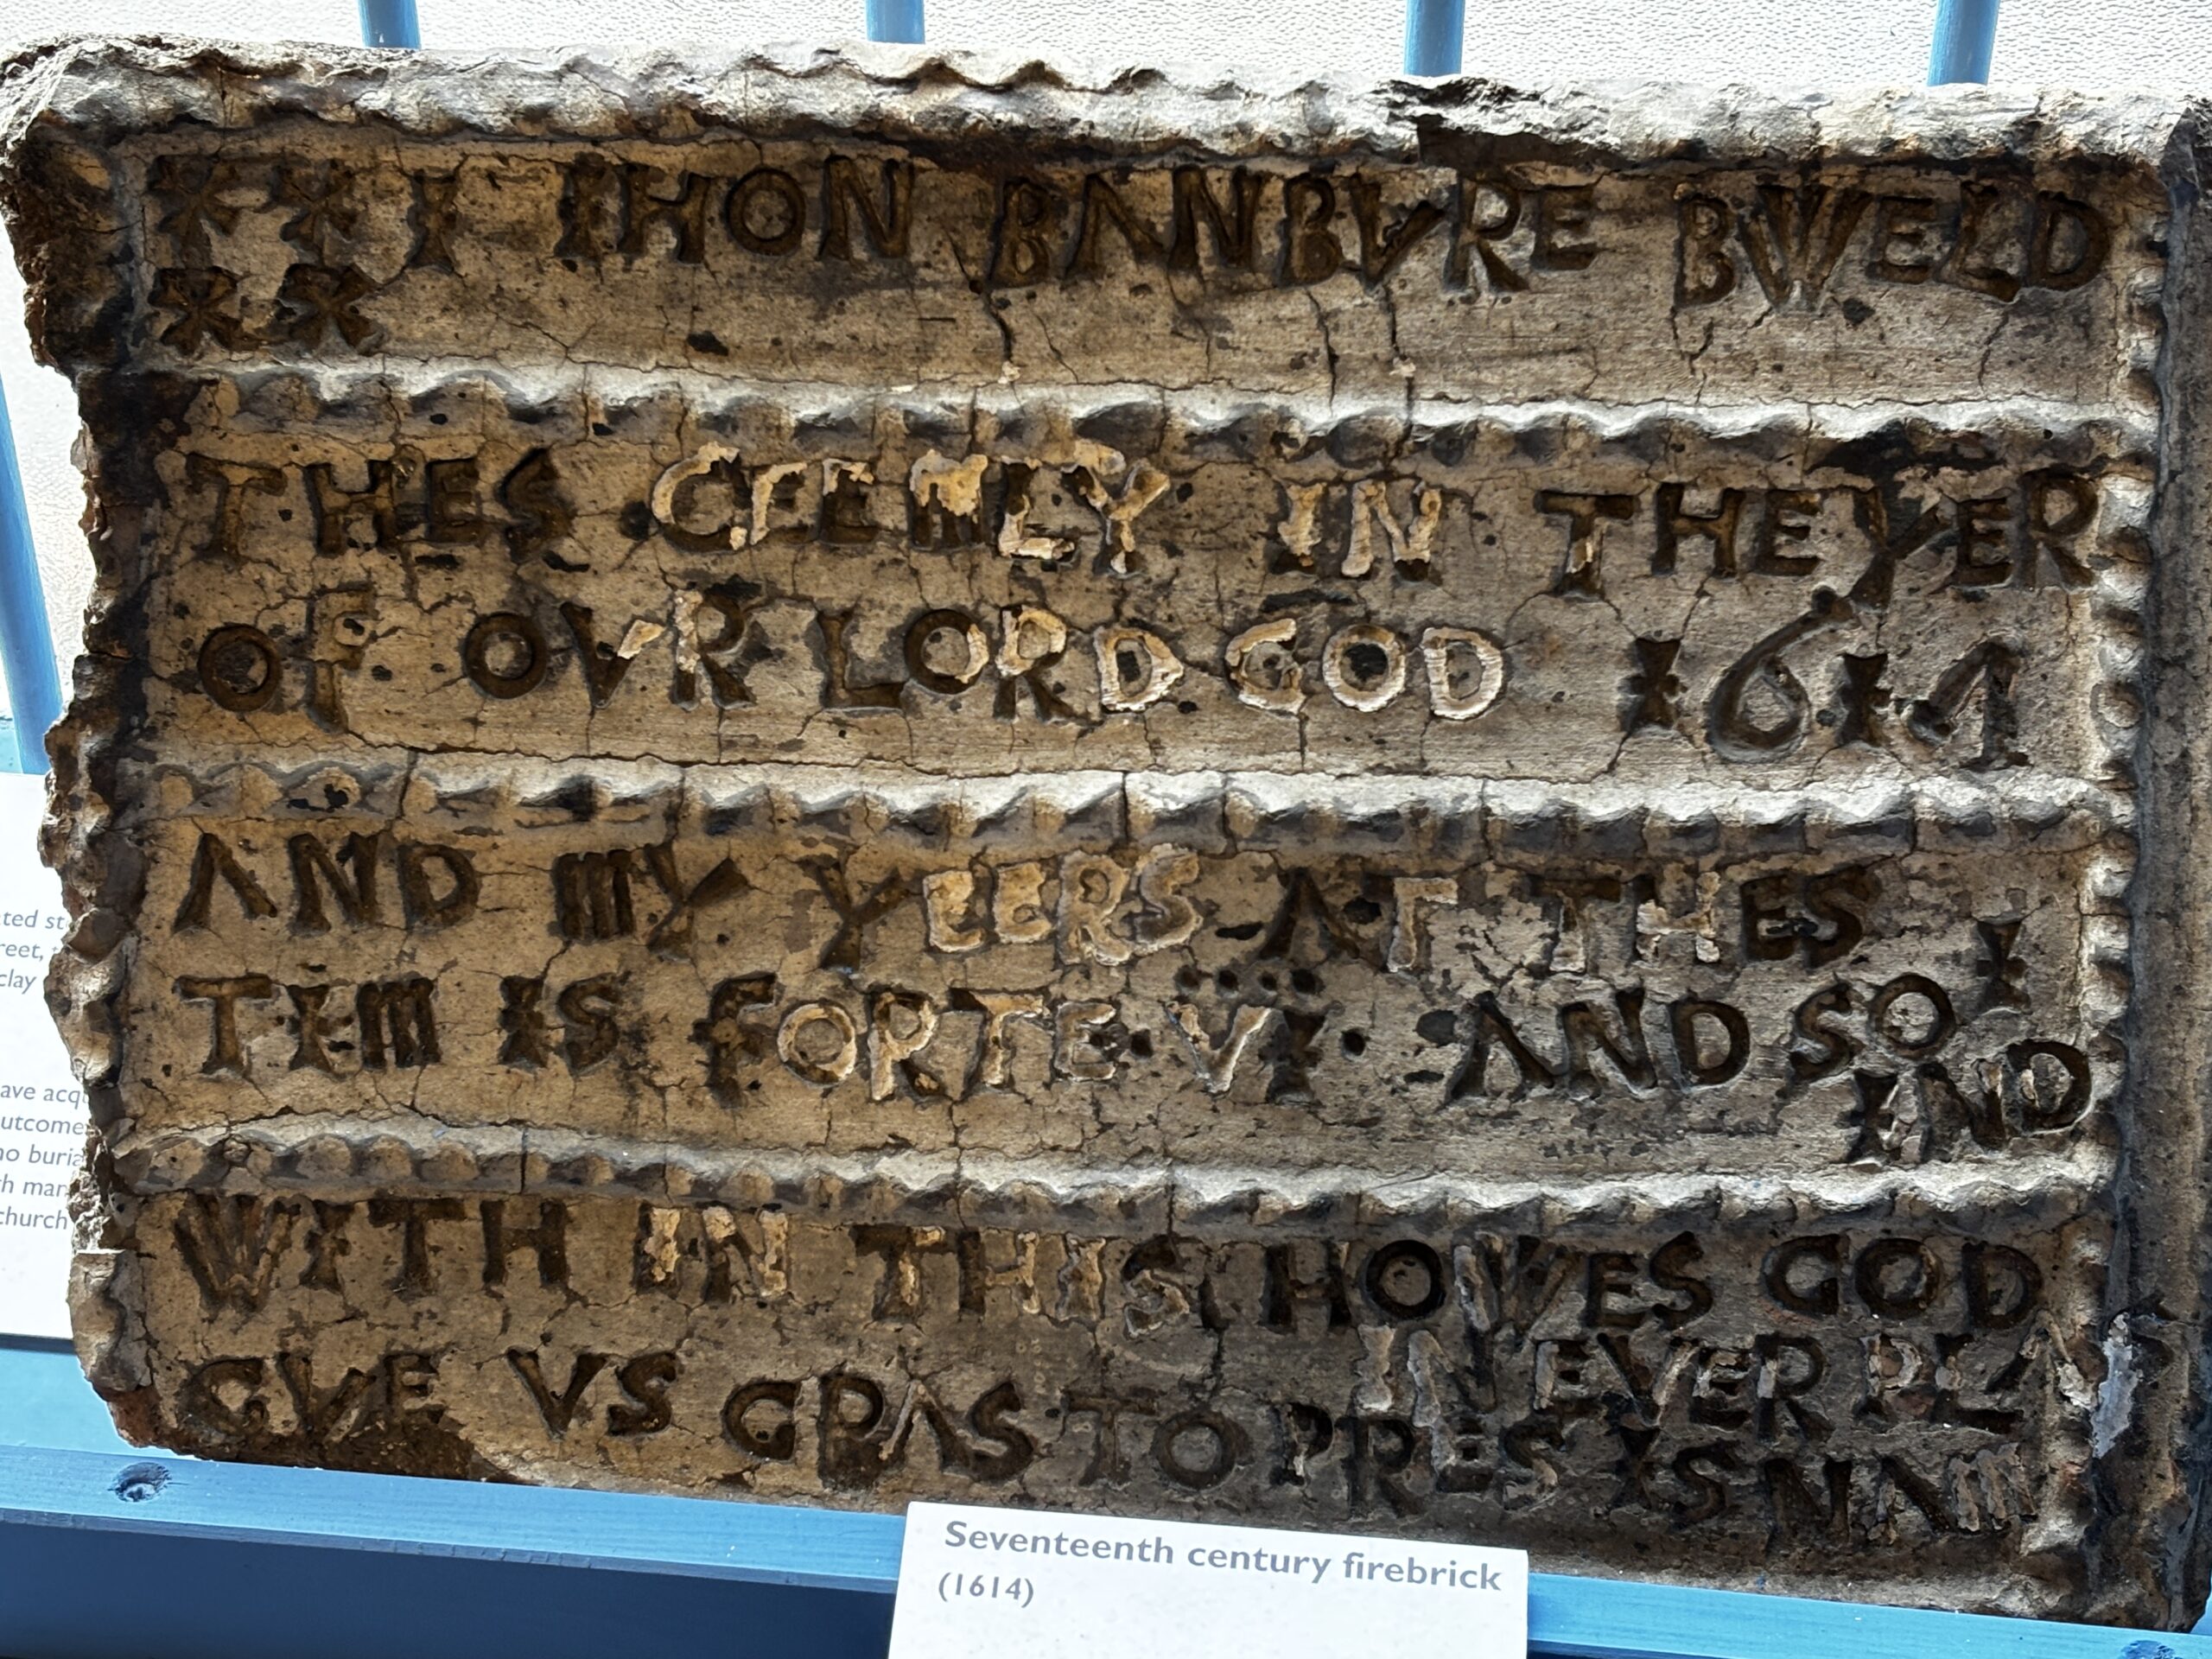 I IHON BANBVRE BWELD
THES CEEMLY IN THE YER
OF OVR LORD GOD 1614
AND MY YEERS AT THES
TIM IS FORTE VI AND SO I
IND
WITH IN THIS HOWES GOD
NEVER PLA
GVE VS GRAS TO PRES IS NAM
Seventeenth century firebrick
(1614)
ted st
reet,
clay
ave acq
utcome
no buria
h mar
church